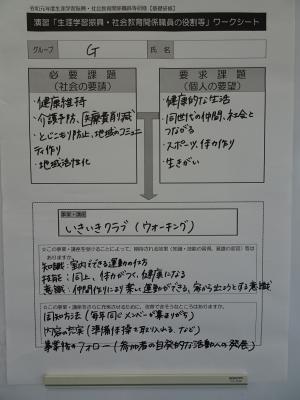 令和元年度生涯学習振興・社会教育関係職員等研修【基礎研修】
演習「生涯学習振興・社会教育関係職員の役割等」ワークシート
グループ G 氏名
必要課題
(社会の要請)
・健康維持
・介護予防、医療費削減
・とじこもり防止、地域のコミュニ
ティ作り
・地域活性化
要求課題
(個人の要望)
・健康的な生活
・同世代の仲間、社会と
つながる
・スポーツ、体力作り
・生きがい
事業・講座
いきいきクラブ(ウォーキング)
知識:室内でできる運動の仕方
技能:同上、体力がつく、健康になる
意識:仲間作りにより楽しく運動ができる、家から出ようとする意識
周知方法(毎年同じメンバーが集まりがち)
内容の充実(準備体操を取り入れる、など)
事業後のフォロー(参加者の自発的な活動への発展)